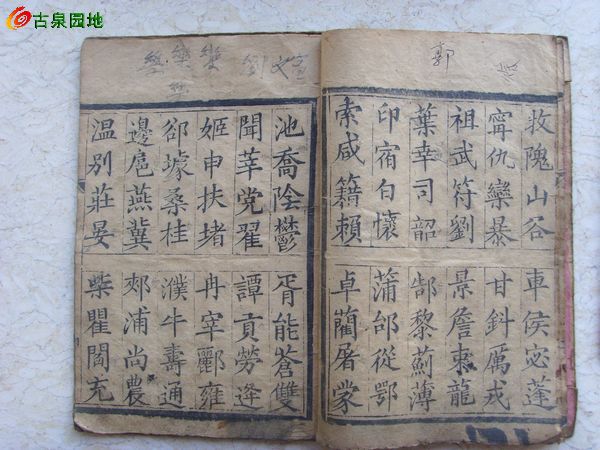 古泉园地
郭
牧隗山谷
車侯宓蓬
甯仇欒暴
甘鈄厲戎
祖武符劉
景詹束龍
葉幸司韶
郜黎薊薄
印宿白懷
蒲邰從鄂
索咸籍賴
卓藺屠蒙
池喬陰鬱
胥能蒼雙
聞莘党翟
譚貢勞逄
姬申扶堵
冉宰酈雍
郤璩桑桂
濮牛壽通
邊扈燕冀
郟浦尚農
温別莊晏
柴瞿閻充